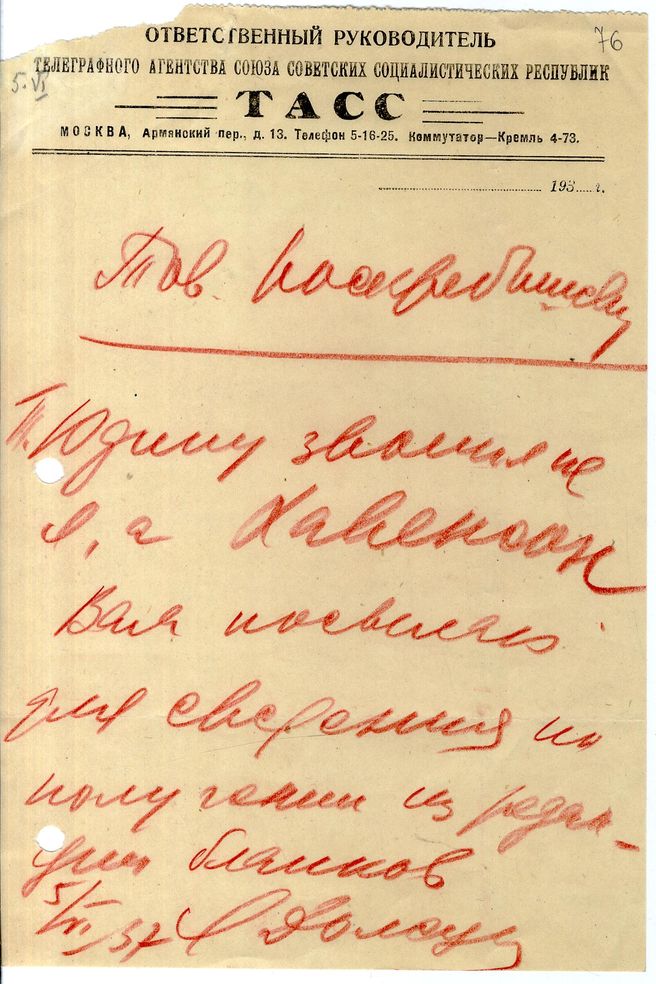 76
ОТВЕТСТВЕННЫЙ РУКОВОДИТЕЛЬ
ТЕЛЕГРАФНОГО АГЕНТСТВА СОЮЗА СОВЕТСКИХ СОЦИАЛИСТИЧЕСКИХ РЕСПУБЛИК
5.VI
ТАСС
МОСКВА, Армянский пер., д. 13. Телефон 5-16-25. Коммутатор—Кремль 4-73.
193 г.
Тов. Поскребышеву
Т. Юдину звонил не
я, а Хавенсон
Вам посылаю
для сведения по
получении из редак-
ции бланков
5/VI/37 Я Долецкий